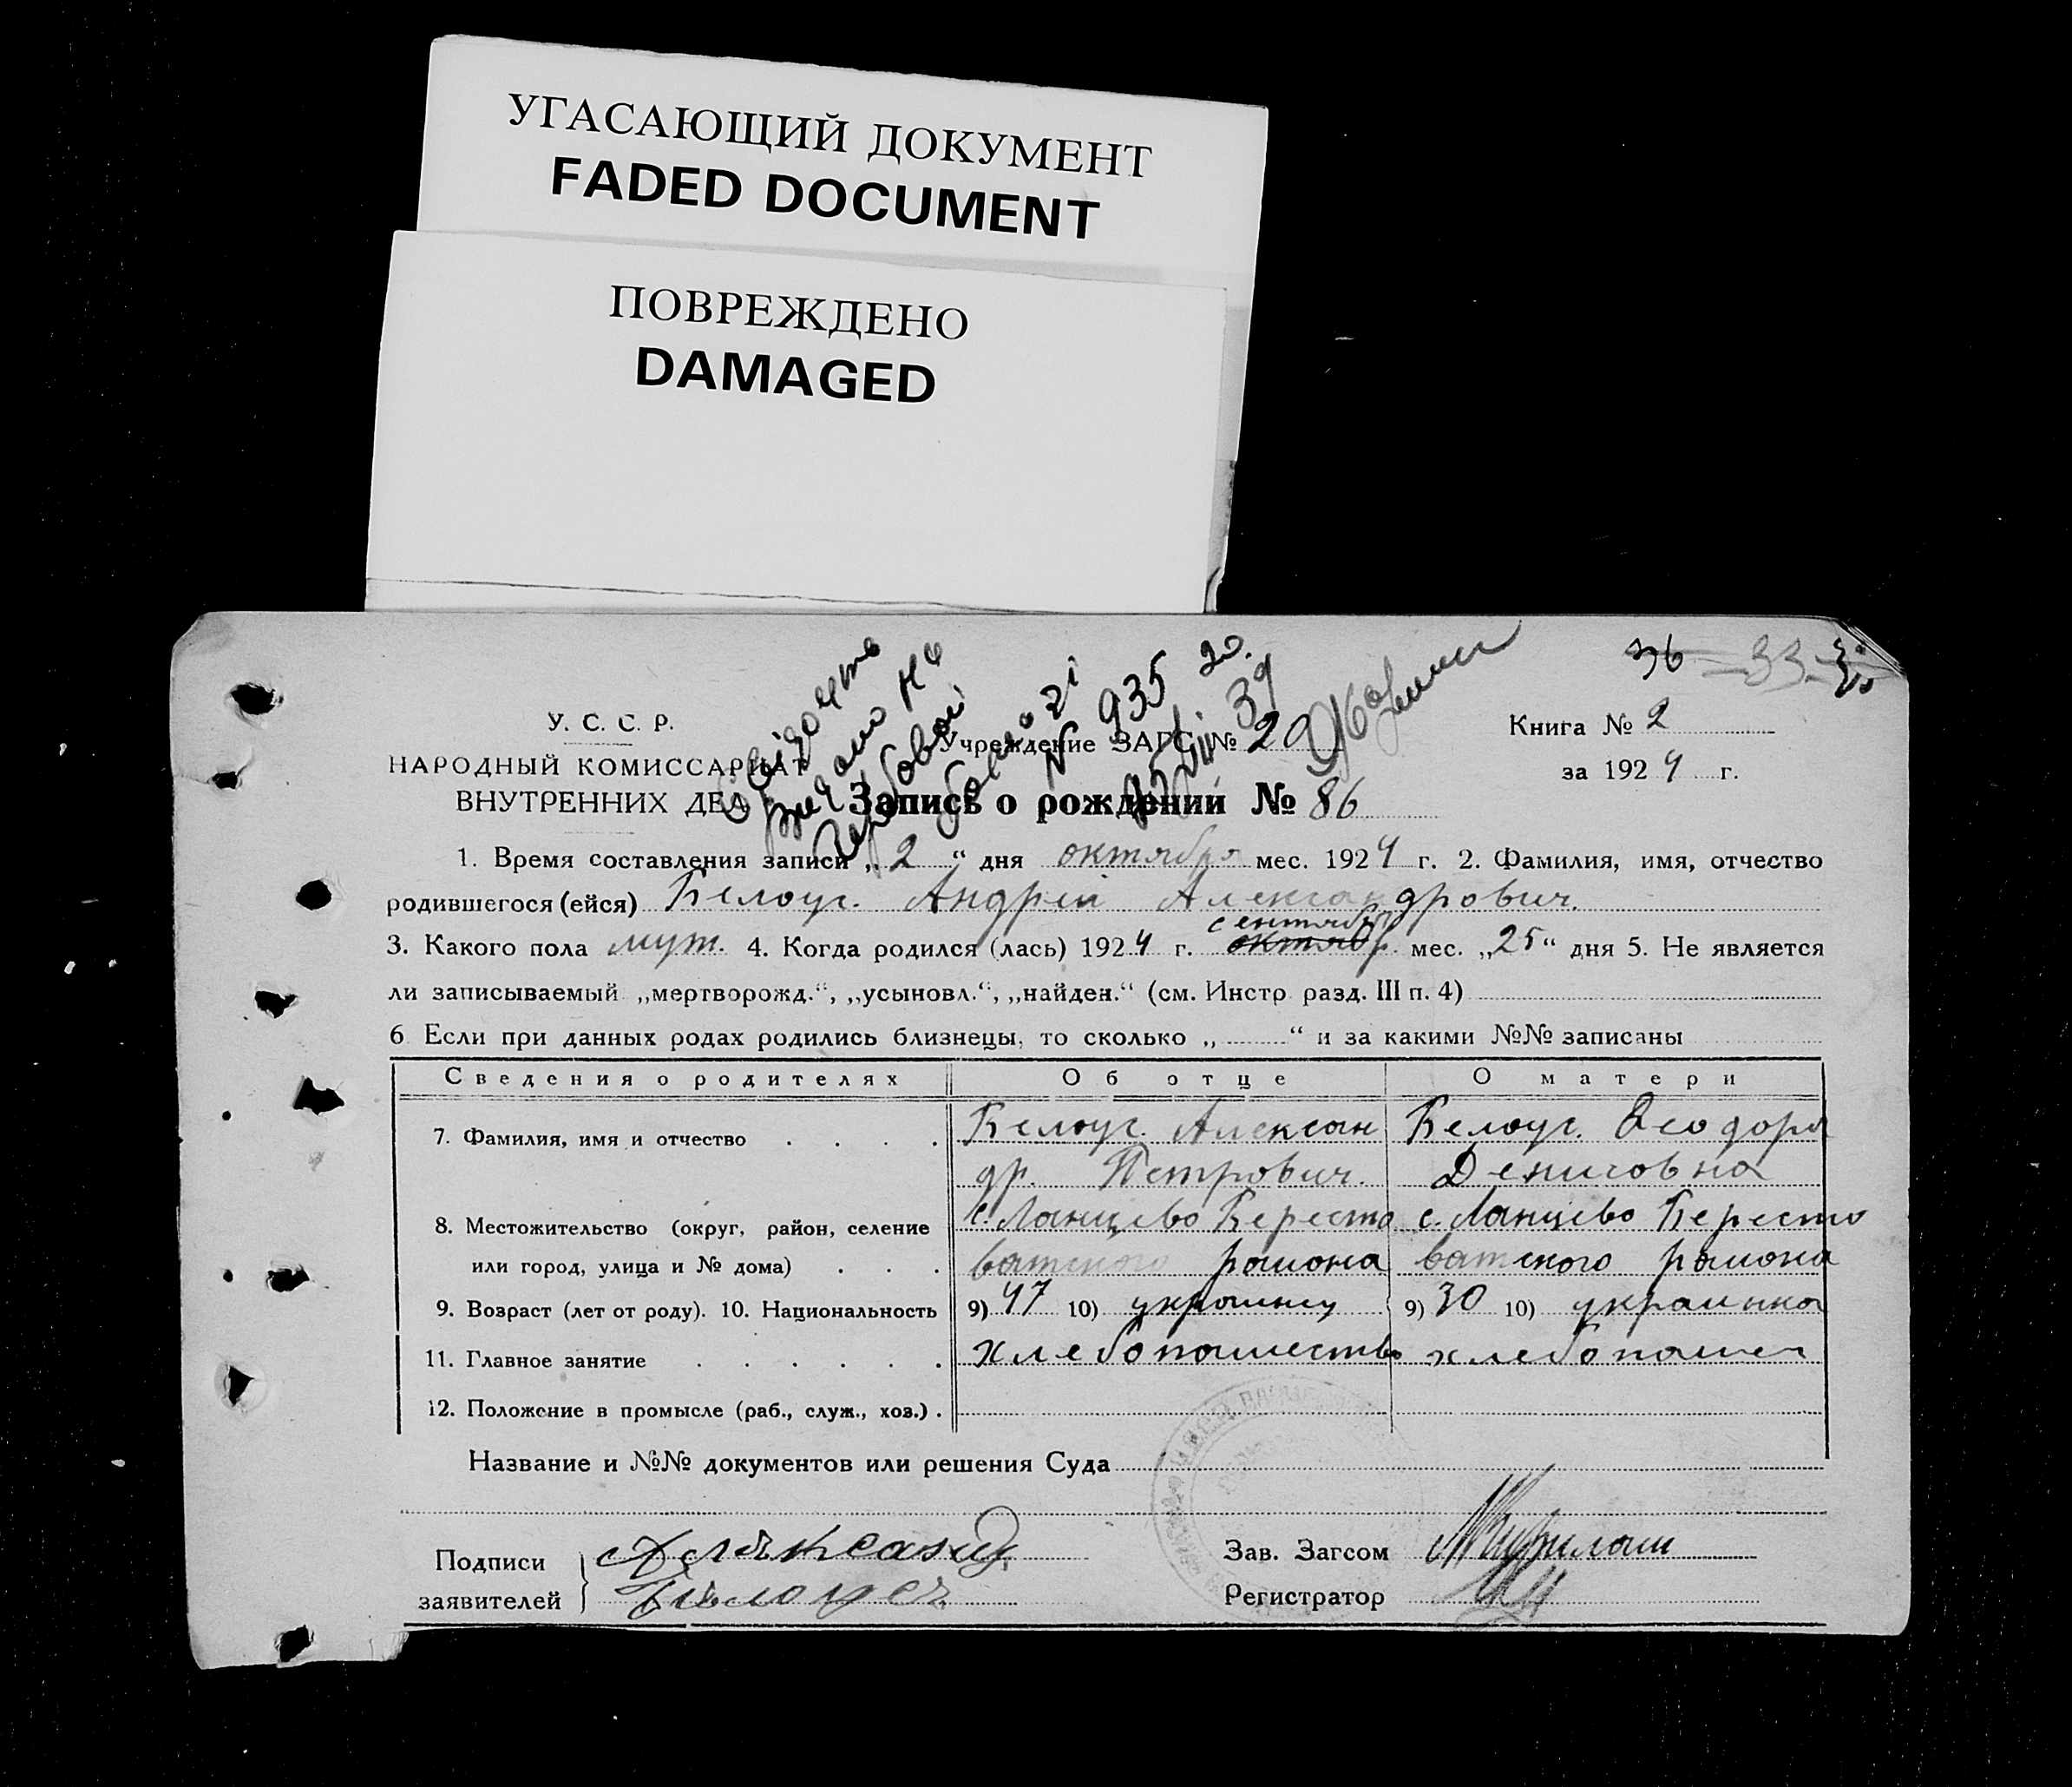 УГАСАЮЩИЙ ДОКУМЕНТ
FADED DOCUMENT
ПОВРЕЖДЕНО
DAMAGED
36 33
У. С. С. Р.
НАРОДНЫЙ КОМИССАРИАТ
ВНУТРЕННИХ ДЕЛ
N 935
Учреждение ЗАГС №
Книга № 2
за 1924 г.
Запись о рождении № 86
1. Время составления записи „2“ дня октября мес. 1924 г. 2. Фамилия, имя, отчество
родившегося (ейся) Белоус. Андрей Александрович.
сентября
3. Какого пола муж. 4. Когда родился (лась) 1924 г. октябр. мес. „25“ дня 5. Не является
ли записываемый „мертворожд.“, „усыновл.“, „найден.“ (см. Инстр. разд. III п. 4)
6 Если при данных родах родились близнецы, то сколько „ “ и за какими №№ записаны
Сведения о родителях Об отце О матери
7. Фамилия, имя и отчество Белоус. Алексан Белоус. Феодора
др. Петрович. Денисовна
8. Местожительство (округ, район, селение с. Ланцево Бересто с. Ланцево Бересто
или город, улица и № дома) ватского района ватского района
9. Возраст (лет от роду). 10. Национальность 9) 47 10) 9) 30 10) украинка
11. Главное занятие хлебопашество хлебопашец
12. Положение в промысле (раб., служ., хоз.)
Название и №№ документов или решения Суда
Подписи
заявителей
Зав. Загсом
Регистратор